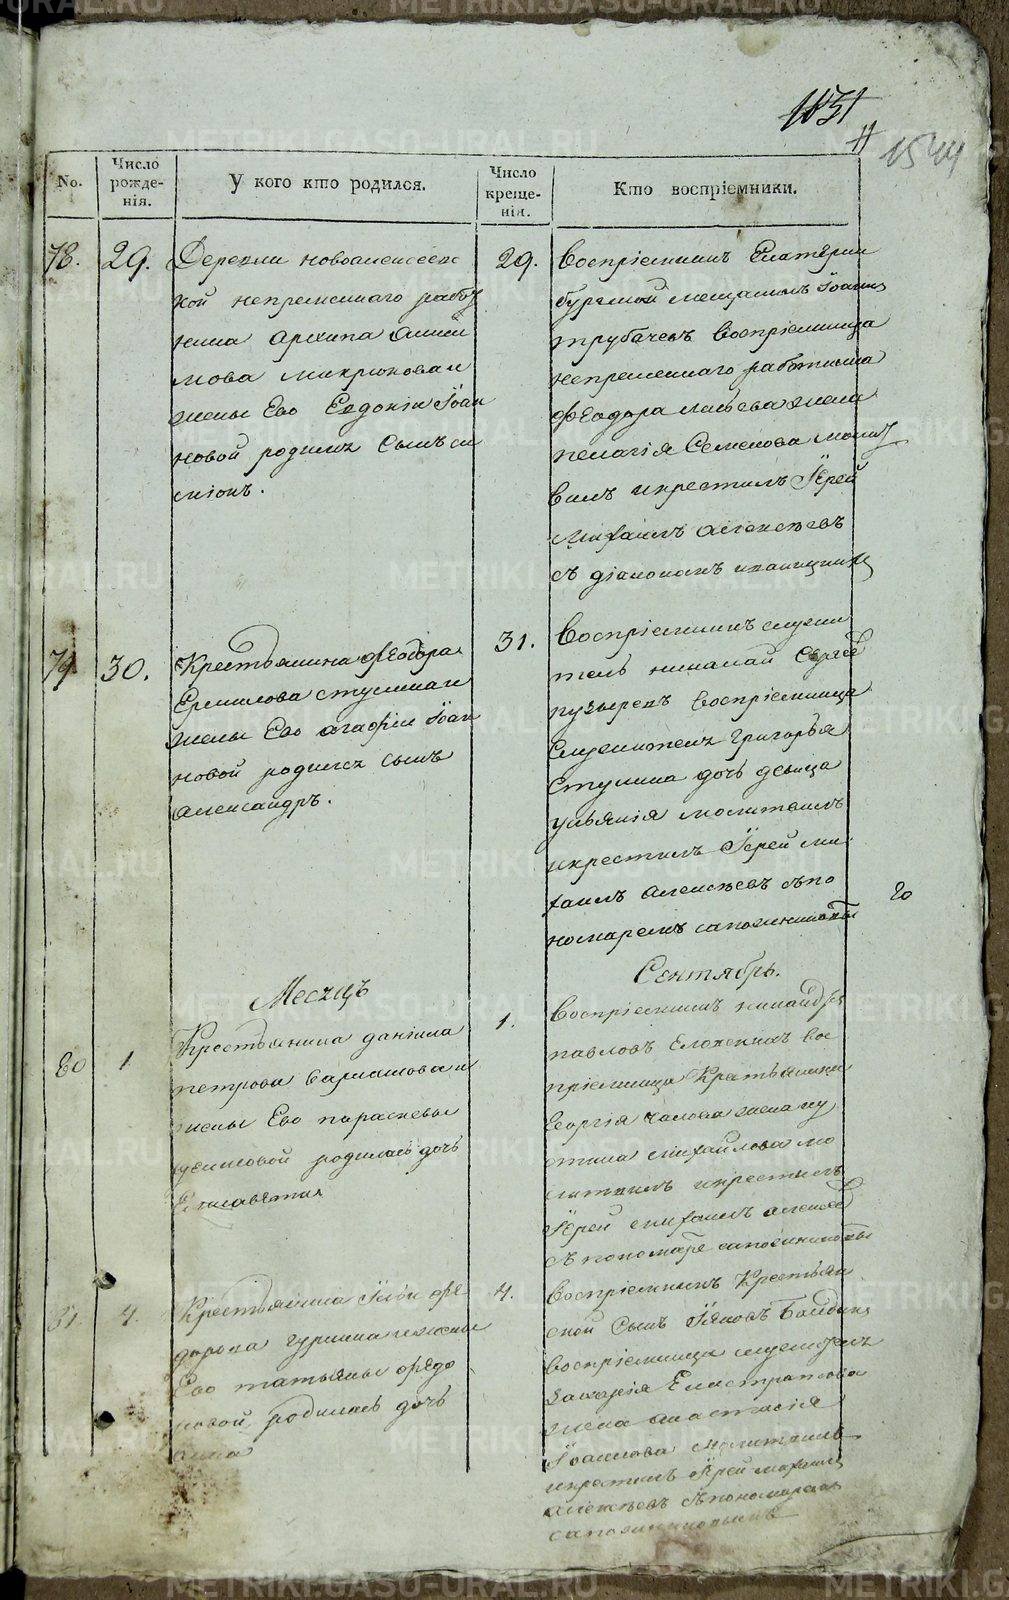 1031
11
1544
No.
Число рожде-нія.
У кого кто родился.
Число креще-нія.
Кто воспріемники.
78.
29.
Деревни новоалексеевс
кой непременнаго работ
ника архипа аники
мова микрюкова и
жены Ево Евдокіи Іоан
новой родился сынъ си
міонъ.
29.
Воспріемникъ Екатерин
бургской мещанинъ Іоаннъ
трубачевъ воспріемница
непременнаго работника
феодора жена
пелагія Семенова молит
вилъ икрестилъ Іерей
михаилъ алексеевъ
съ діакономъ
79.
30.
Крестьянина феодора
Ермилова стулина и
жены Ево агафіи Іоан
новой родился сынъ
александръ.
31.
Воспріемникъ служи
тель николай Сергеев
пузыревъ воспріемница
служителя григорья
стулина дочь девица
ульянія молитвилъ
икрестилъ Іерей ми
хаилъ алексеевъ съпо
номаремъ сапожниковы
20
Месяцъ
Сентябрь.
80
1
Крестьянина даніила
петрова варлакова и
жены Ево парасковьи
родилась дочь
Елисавета
1.
Воспріемникъ никандръ
павловъ вос
пріемница Крестьянина
Георгія жена иу
стина михайлова мо
литвилъ икрестилъ
Іерей михаилъ алексеев
съ пономаре сапожниковы
81.
4.
Крестьянина Ильи фе
дорова гурина ижены
Ево татьяны федо
ровой родилась дочь
анна
4.
воспріемникъ Крестьян
ской сынъ Іяковъ
воспріемница служителя
захарія Елистратова
жена анастасія
Іоаннова молитвилъ
икрестилъ Іерей михаилъ
алексеевъ съпономаремъ
сапожниковымъ